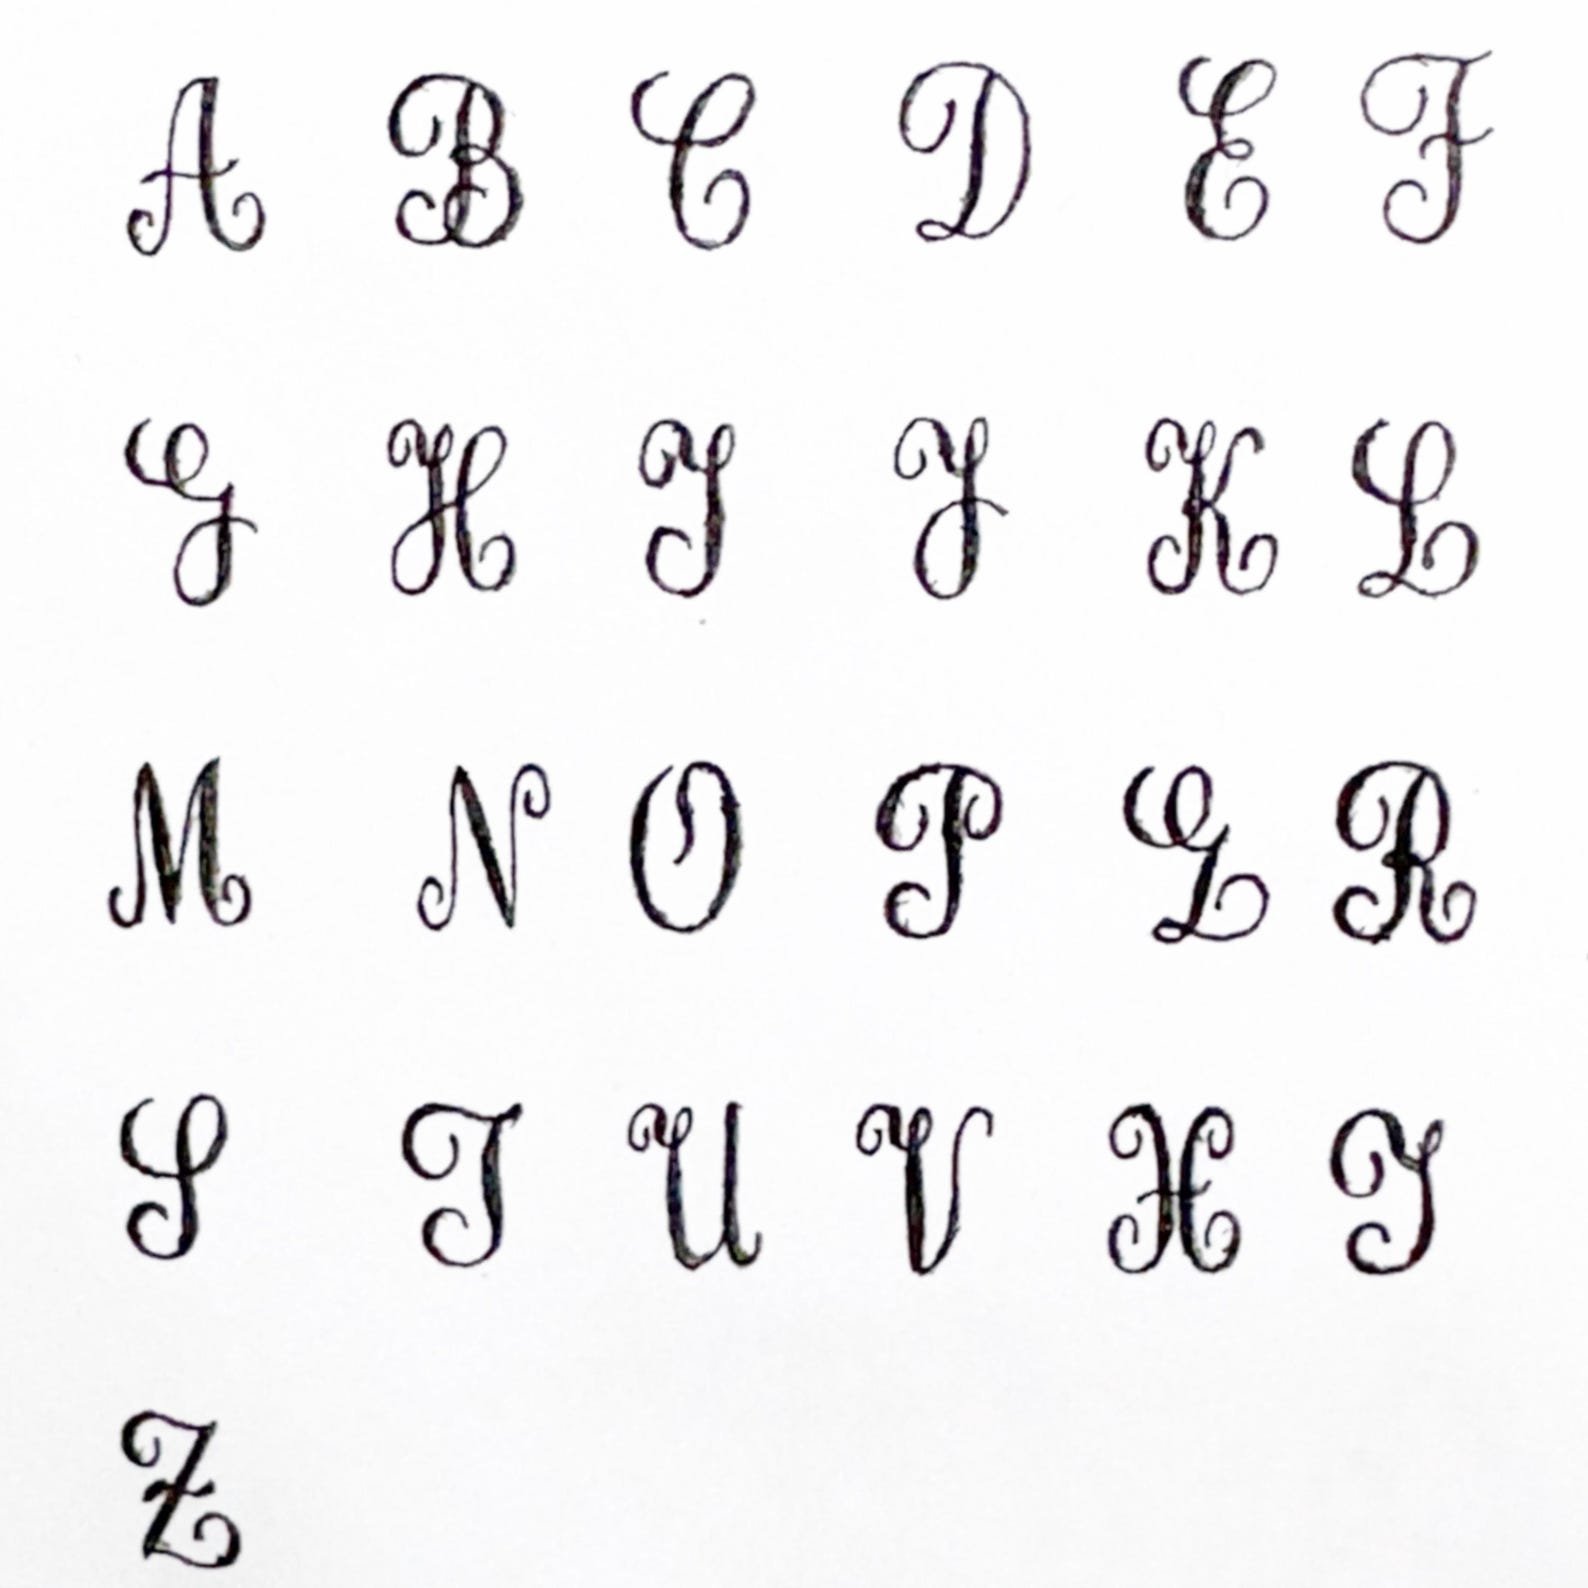 A B C D E F
G H I J K L
M N O P Q R
S T U V X Y
Z